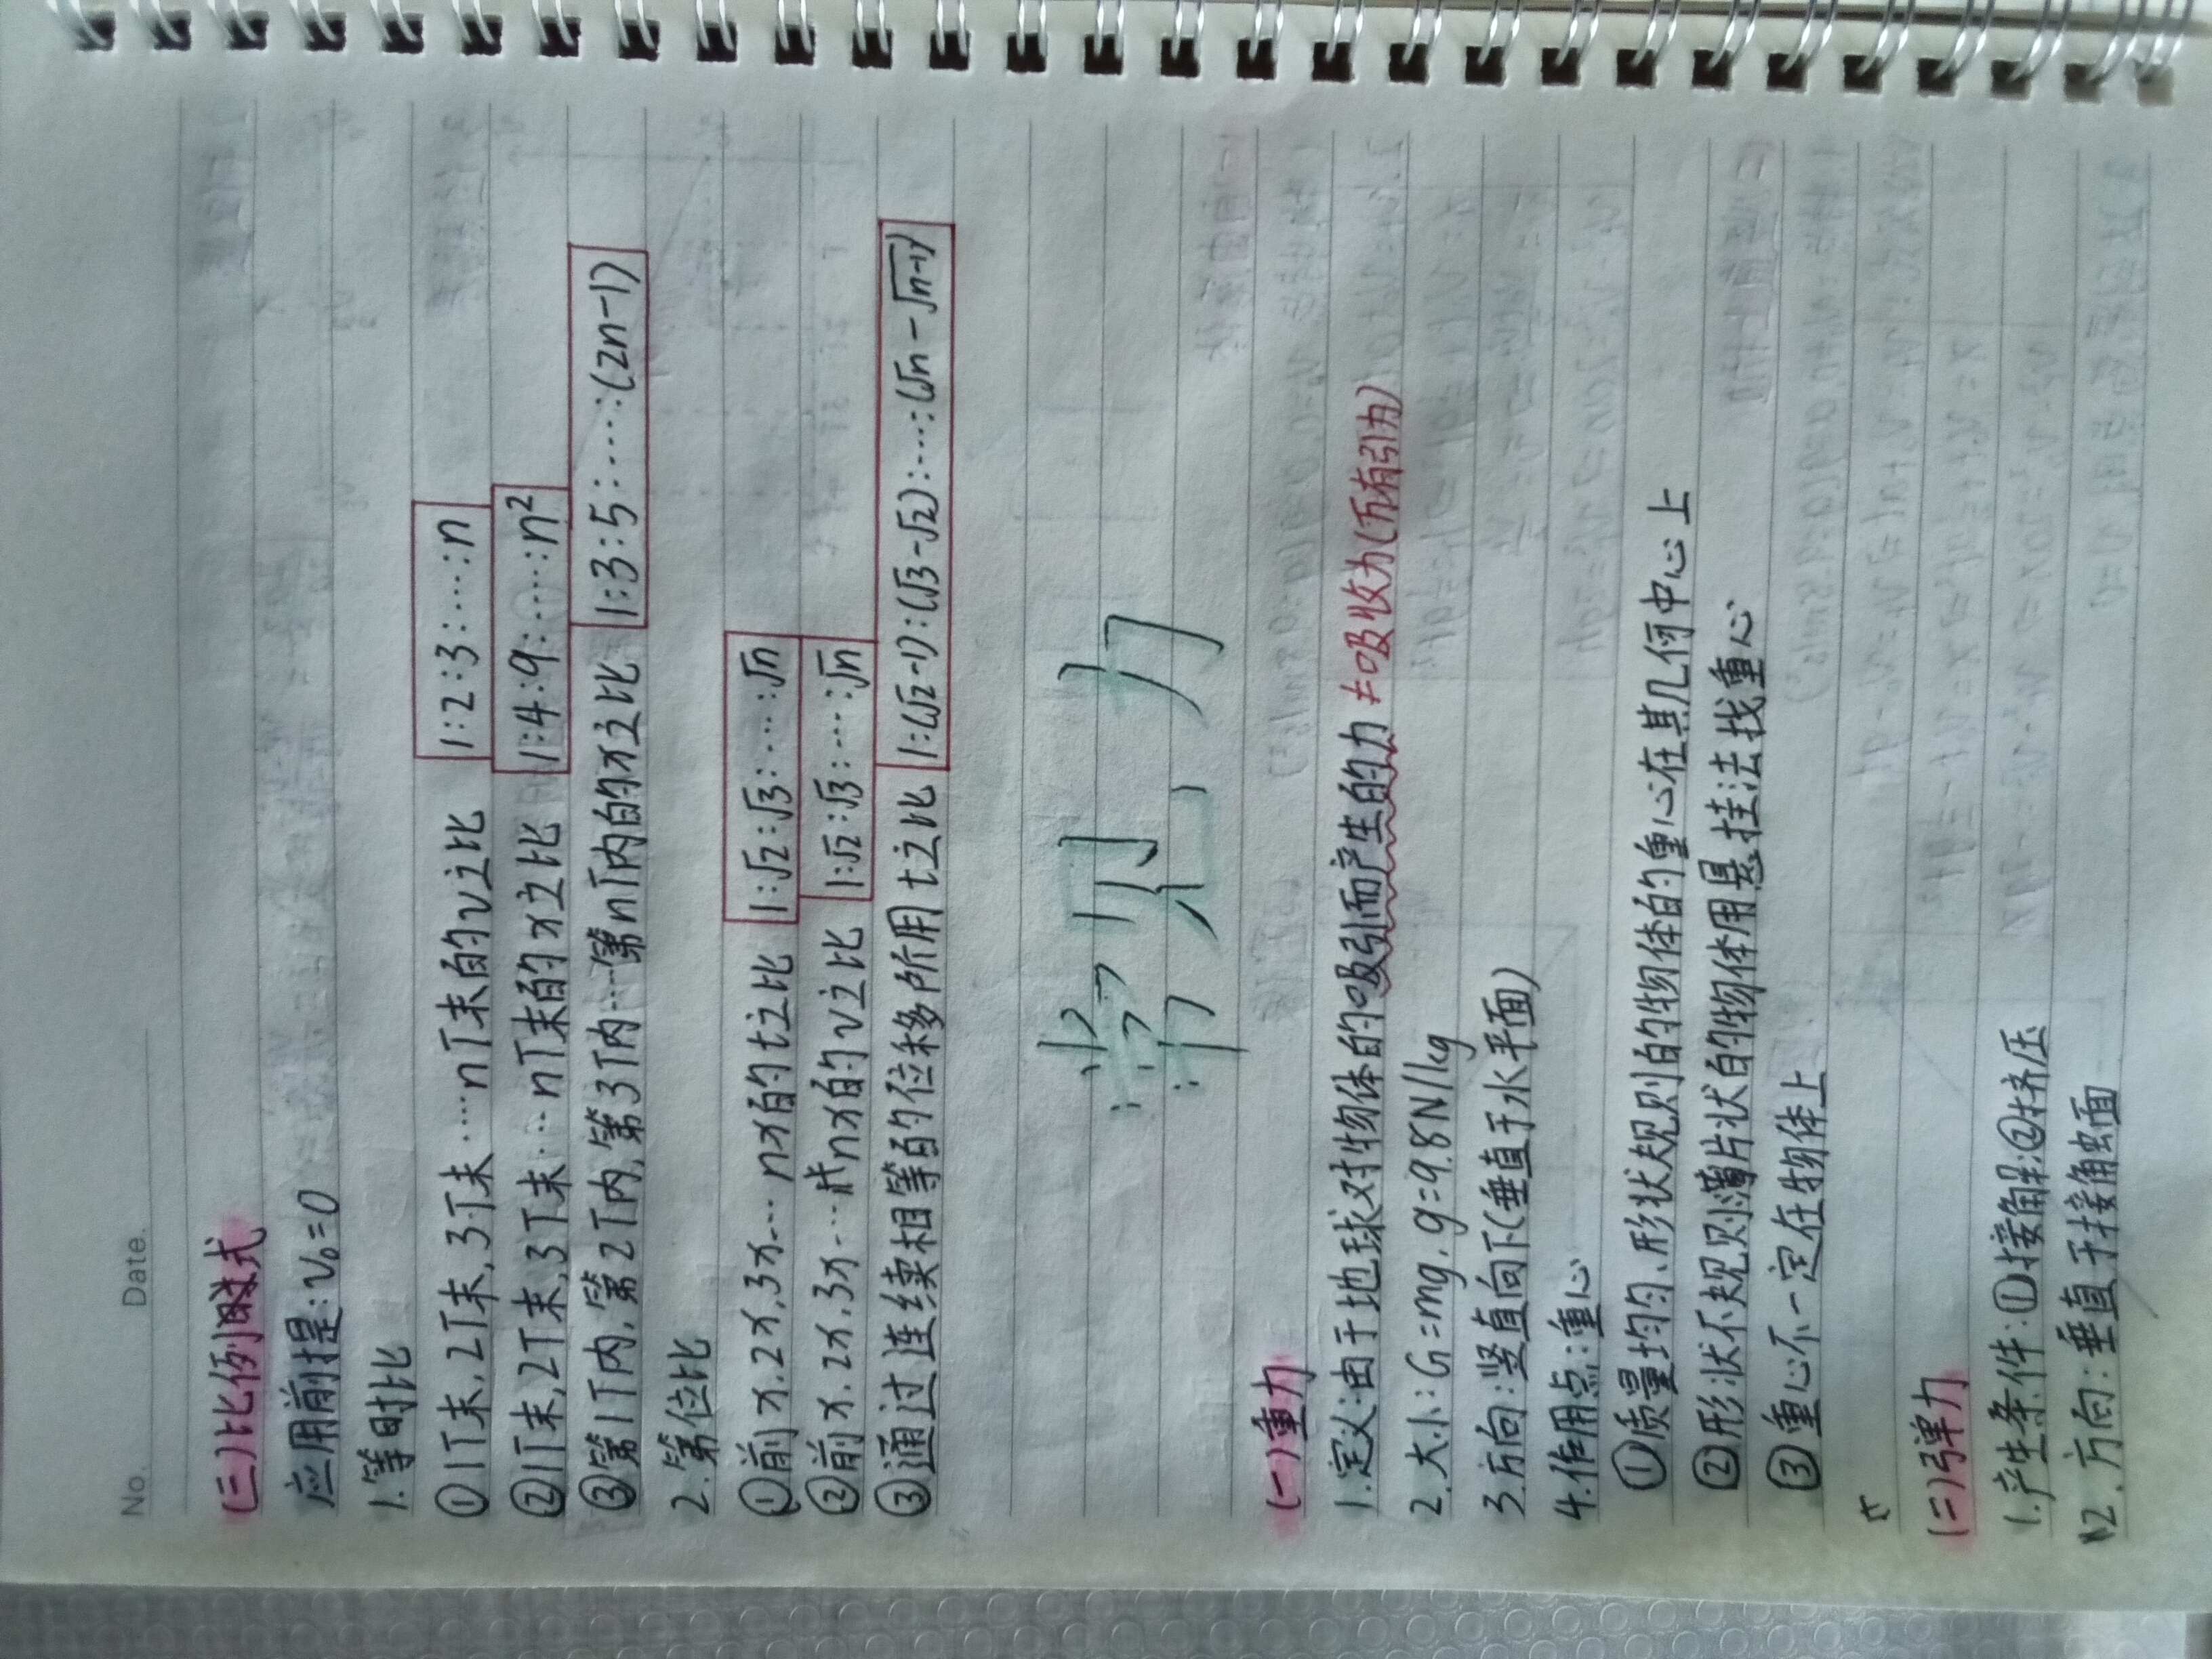 No.      Date.
(三)比例式
应用前提:v₀=0
1.等时比
①1T末,2T末,3T末…nT末的v之比 1:2:3:…:n
②1T末,2T末,3T末…nT末的x之比 1:4:9:…:n²
③第1T内,第2T内,第3T内…第nT内的x之比 1:3:5:…:(2n-1)
2.等位比
①前x,2x,3x…nx的t之比 1:√2:√3:…:√n
②前x,2x,3x…nx的v之比 1:√2:√3:…:√n
③通过连续相等的位移所用t之比 1:(√2-1):(√3-√2):…:(√n-√n-1)
常见力
(一)重力
1.定义:由于地球对物体的吸引而产生的力≠吸收力(万有引力)
2.大小:G=mg,g=9.8N/kg
3.方向:竖直向下(垂直于水平面)
4.作用点:重心
①质量均匀、形状规则的物体的重心在其几何中心上
②形状不规则薄片状的物体用悬挂法找重心
③重心不一定在物体上
(二)弹力
1.产生条件:①接触②挤压
2.方向:垂直于接触面